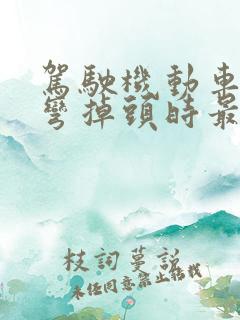 駕駛機動車
彎掉頭時最
枝詞蔓說
未經同意禁止轉載